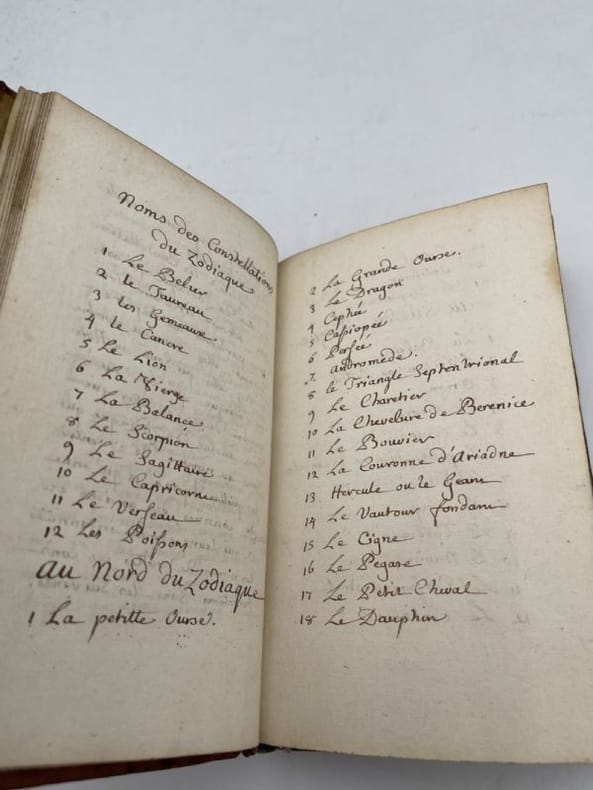 Noms des Constellations
du Zodiaque
1 Le Belier
2 le Taureau
3 les Gemeaux
4 le Cancre
5 Le Lion
6 La Vierge
7 La Balance
8 Le Scorpion
9 Le Sagittaire
10 Le Capricorne
11 Le Verseau
12 Les Poissons
au Nord du Zodiaque
1 La petitte Ourse.
2 La Grande Ourse.
3 Le Dragon
4 Cephée
5 Cassiopée
6 Persée
7 Andromede.
8 le Triangle Septentrional
9 Le Charetier
10 La Chevelure de Berenice
11 Le Bouvier
12 La Couronne d'Ariadne
13 Hercule ou le Geant
14 Le Vautour fondant
15 Le Cigne
16 Le Pegase
17 Le Petit Cheval
18 Le Dauphin